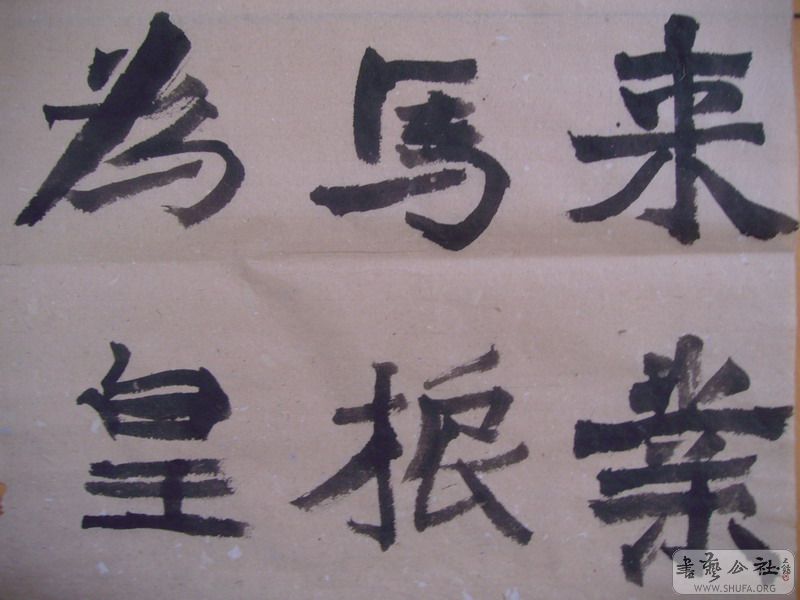 来業
馬振
為皇
書藝公社
WWW.SHUFA.ORG